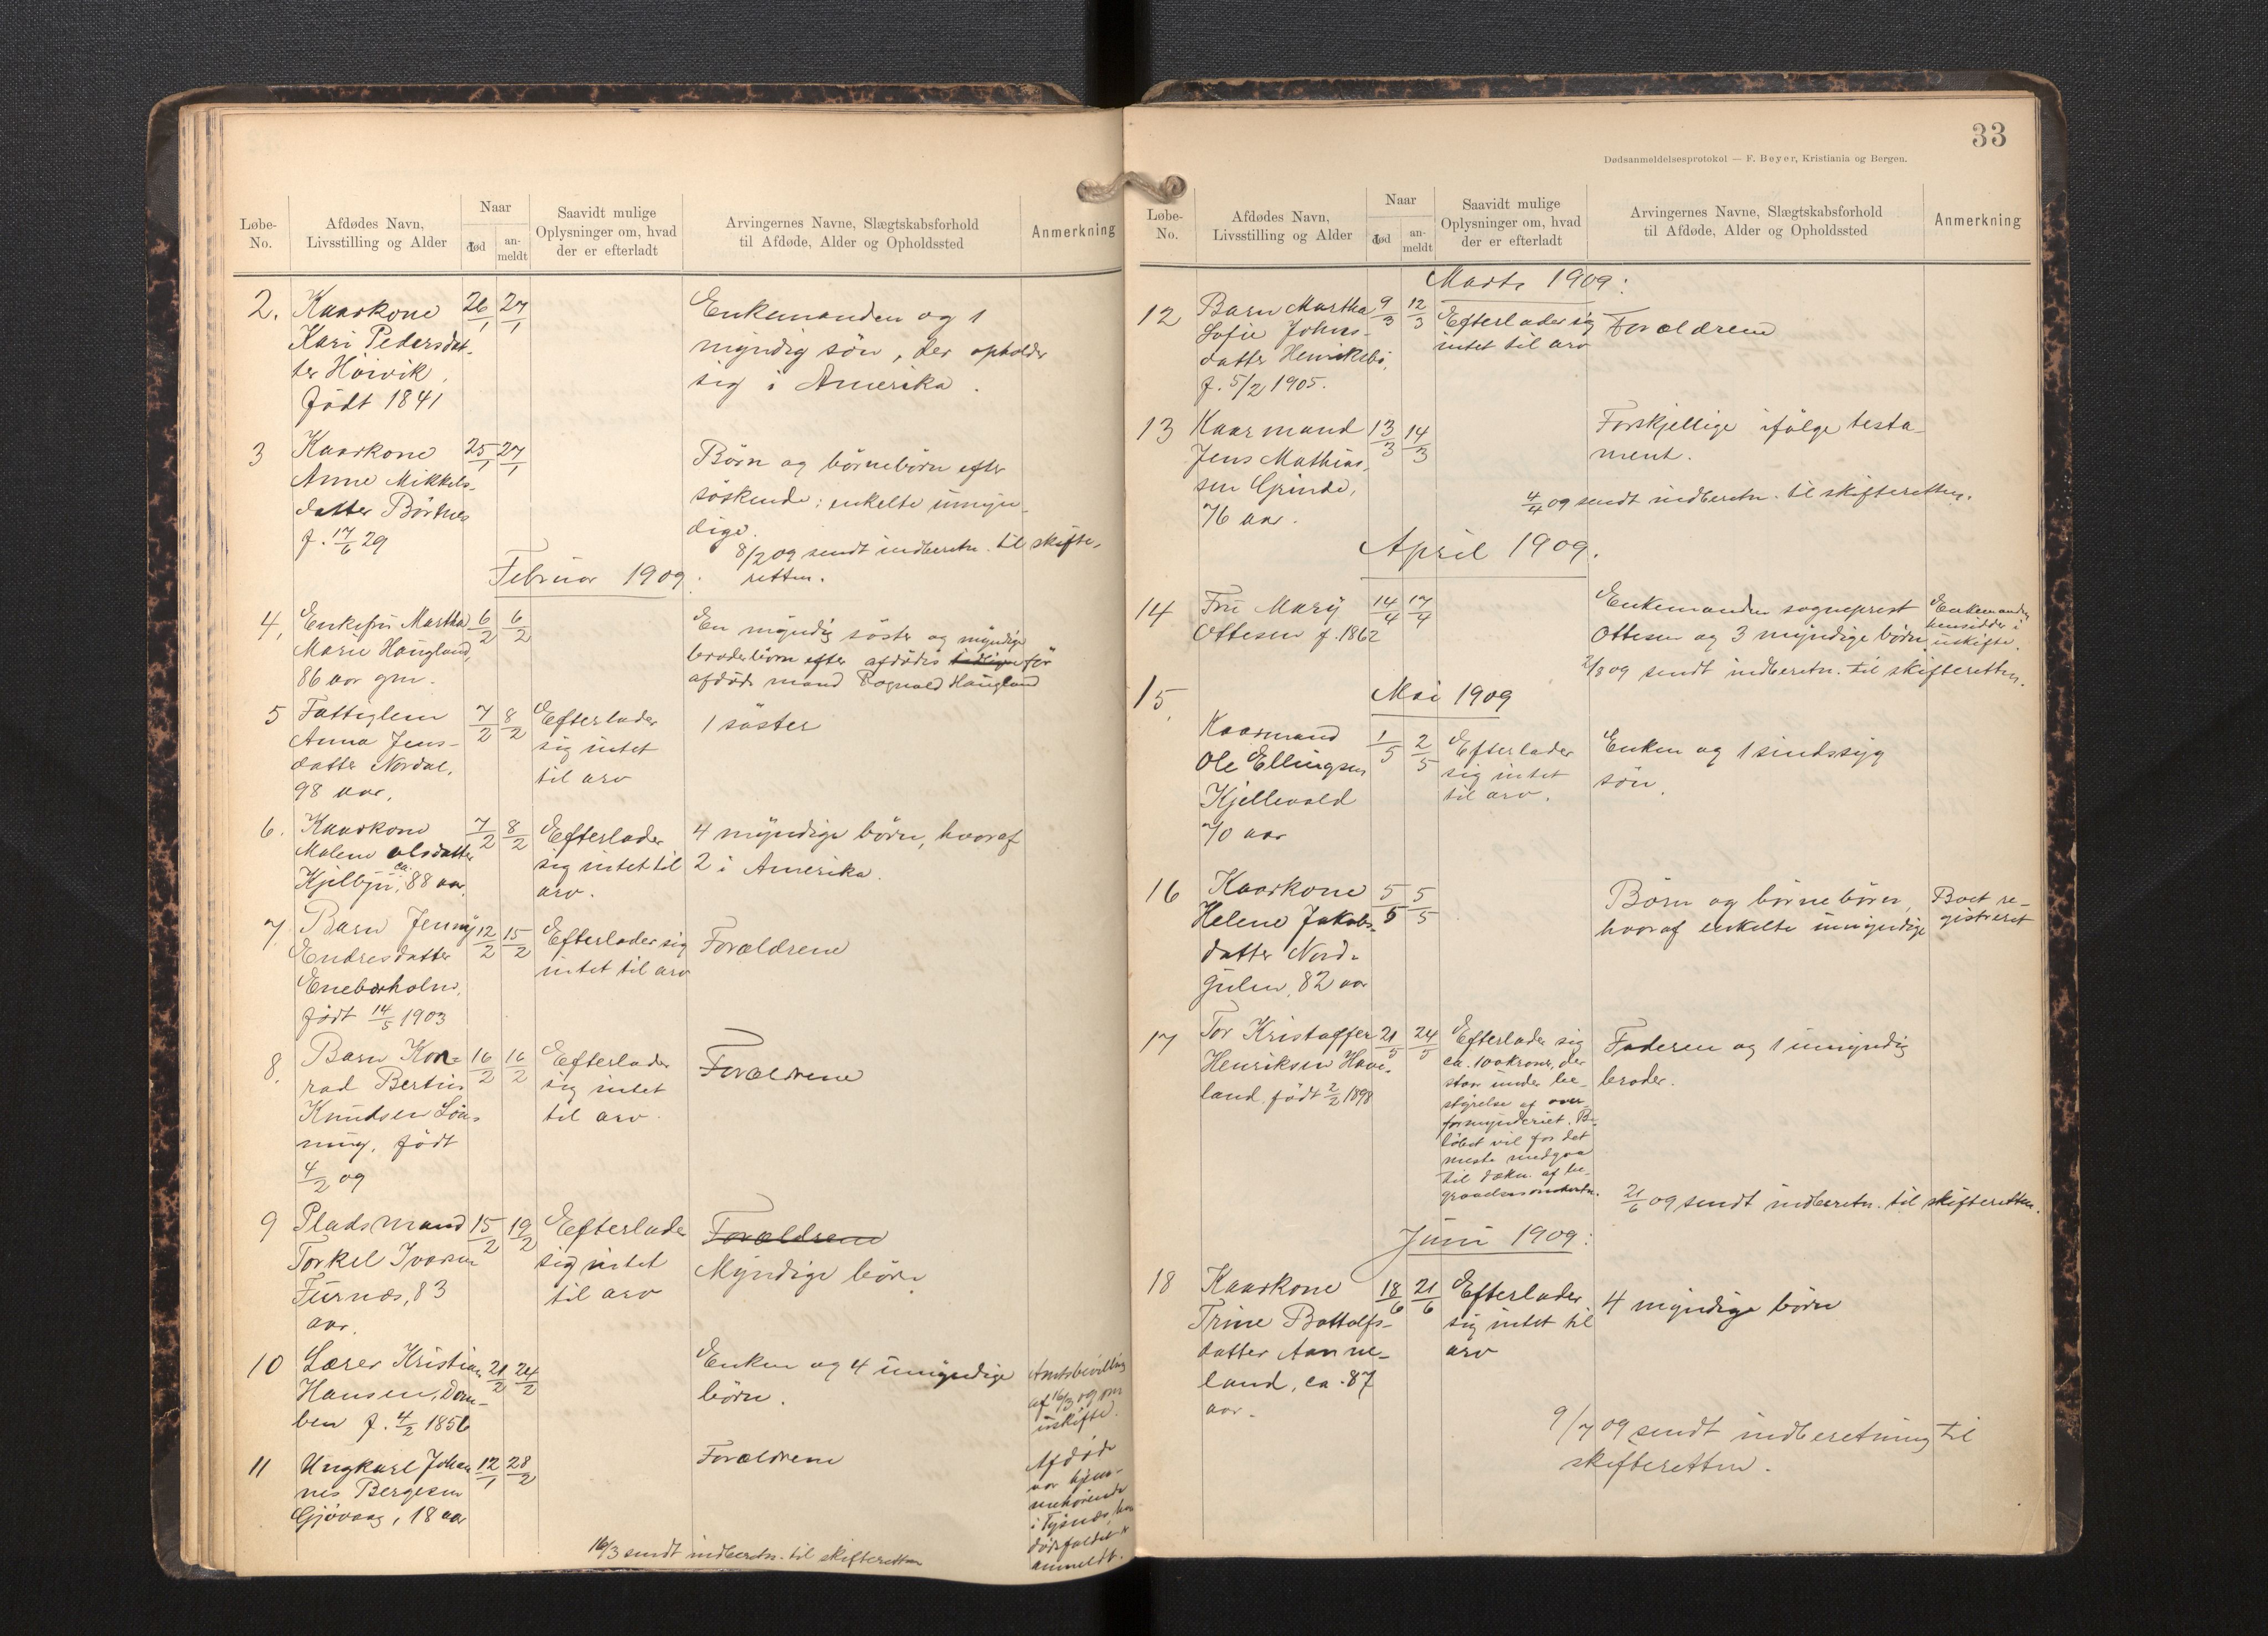 Løbe-No.
Afdødes Navn, Livsstilling og Alder
Naar
død
an-meldt
Saavidt mulige Oplysninger om, hvad der er efterladt
Arvingernes Navne, Slægtskabsforhold til Afdøde, Alder og Opholdssted
Anmerkning
2. Kaarkone 26/1 27/1 Enkemanden og 1
Kari Pedersdat- myndig søn, der opholder
ter Høivik, sig i Amerika.
født 1841
3 Kaarkone 25/1 27/1 Børn og børnebørn efter
Anne Mikkels- søskende; enkelte umyn-
datter Børtnes dige.
f. 17/6 29 8/2 09 sendt indberetn. til skifte-
retten.
Februar 1909.
4, Enkefru Martha 6/2 6/2 En myndig søster og myndige
Marie Haugland, broderbørn efter afdødes før
86 aar gm. afdøde mand Ragnvald Haugland
5 Fattiglem 7/2 8/2 Efterlader 1 søster
Anna Jens- sig intet
datter Nordal, til arv
98 aar,
6. Kaarkone 7/2 8/2 Efterlader 4 myndige børn, hvoraf
Malene Olsdatter sig intet til 2 i Amerika.
Kjelbju, ca 88 aar. arv.
7, Barn Jenny 12/2 15/2 Efterlader sig Forældrene
Endresdatter intet til arv
Eneberholm,
født 14/5 1903
8, Barn Kon- 16/2 16/2 Efterlader Forældrene
rad Bertin sig intet
Knudsen Løn- til arv.
ning, født
4/2 09
9 Pladsmand 15/2 19/2 Efterlade Forældrene
Torkel Ivarsen sig intet Myndige børn.
Furnæs, 83 til arv
aar.
10 Lærer Kristian 21/2 24/2 Enken og 4 umyndige Amtsbevilling
Hansen, Dom- børn. af 16/3 09 om
ben f. 4/2 1856 uskifte.
11 Ungkarl Johan 12/1 28/2 Forældrene Afdøde
nes Bergesen var hjem-
Gjøvaag, 18 aar mehørende
i Tysnæs, hvor
dødsfaldet er
anmeldt.
16/3 sendt indberetn. til skifteretten
33
Dødsanmeldelsesprotokol — F. Beyer, Kristiania og Bergen.
Løbe-No.
Afdødes Navn, Livsstilling og Alder
Naar
død
an-meldt
Saavidt mulige Oplysninger om, hvad der er efterladt
Arvingernes Navne, Slægtskabsforhold til Afdøde, Alder og Opholdssted
Anmerkning
Marts 1909:
12 Barn Martha 9/3 12/3 Efterlader sig Forældrene
Sofie Johns- intet til arv
datter Henriksbø,
f. 5/2 1905.
13 Kaarmand 13/3 14/3 Forskjellige ifølge testa-
Jens Mathias- ment.
sen Grinde,
76 aar. 4/4 09 sendt indberetn. til skifteretten.
April 1909.
14 Fru Mary 14/4 17/4 Enkemanden sogneprest Enkemanden
Ottesen f. 1862 Ottesen og 3 myndige børn. hensidder i uskifte.
2/8 09 sendt indberetn. til skifteretten.
15, Mai 1909
Kaarmand 1/5 2/5 Efterlader Enken og 1 sindssyg
Ole Ellingsen sig intet søn.
Kjellevold til arv.
70 aar
16 Kaarkone 5/5 5/5 Børn og børnebørn, Boet re-
Helene Jakobs- hvoraf enkelte umyndige gistreret
datter Nord-
gulen, 82 aar
17 Tor Kristoffer 21/5 24/5 Efterlader sig Faderen og 1 umyndig
Henriksen Have- ca. 100 kroner, der broder.
land, født 2/2 1898 staar under be-
styrelse af over-
formynderiet. Be-
løbet vil for det
meste medgaa
til dækn. af be-
gravelsesomkostn.
21/6 09 sendt indberetn. til skifteretten.
Juni 1909:
18 Kaarkone 18/6 21/6 Efterlader 4 myndige børn
Trine Bottolfs- sig intet til
datter Aanne- arv
land, ca. 87
aar.
9/7 09 sendt indberetning til
skifteretten.